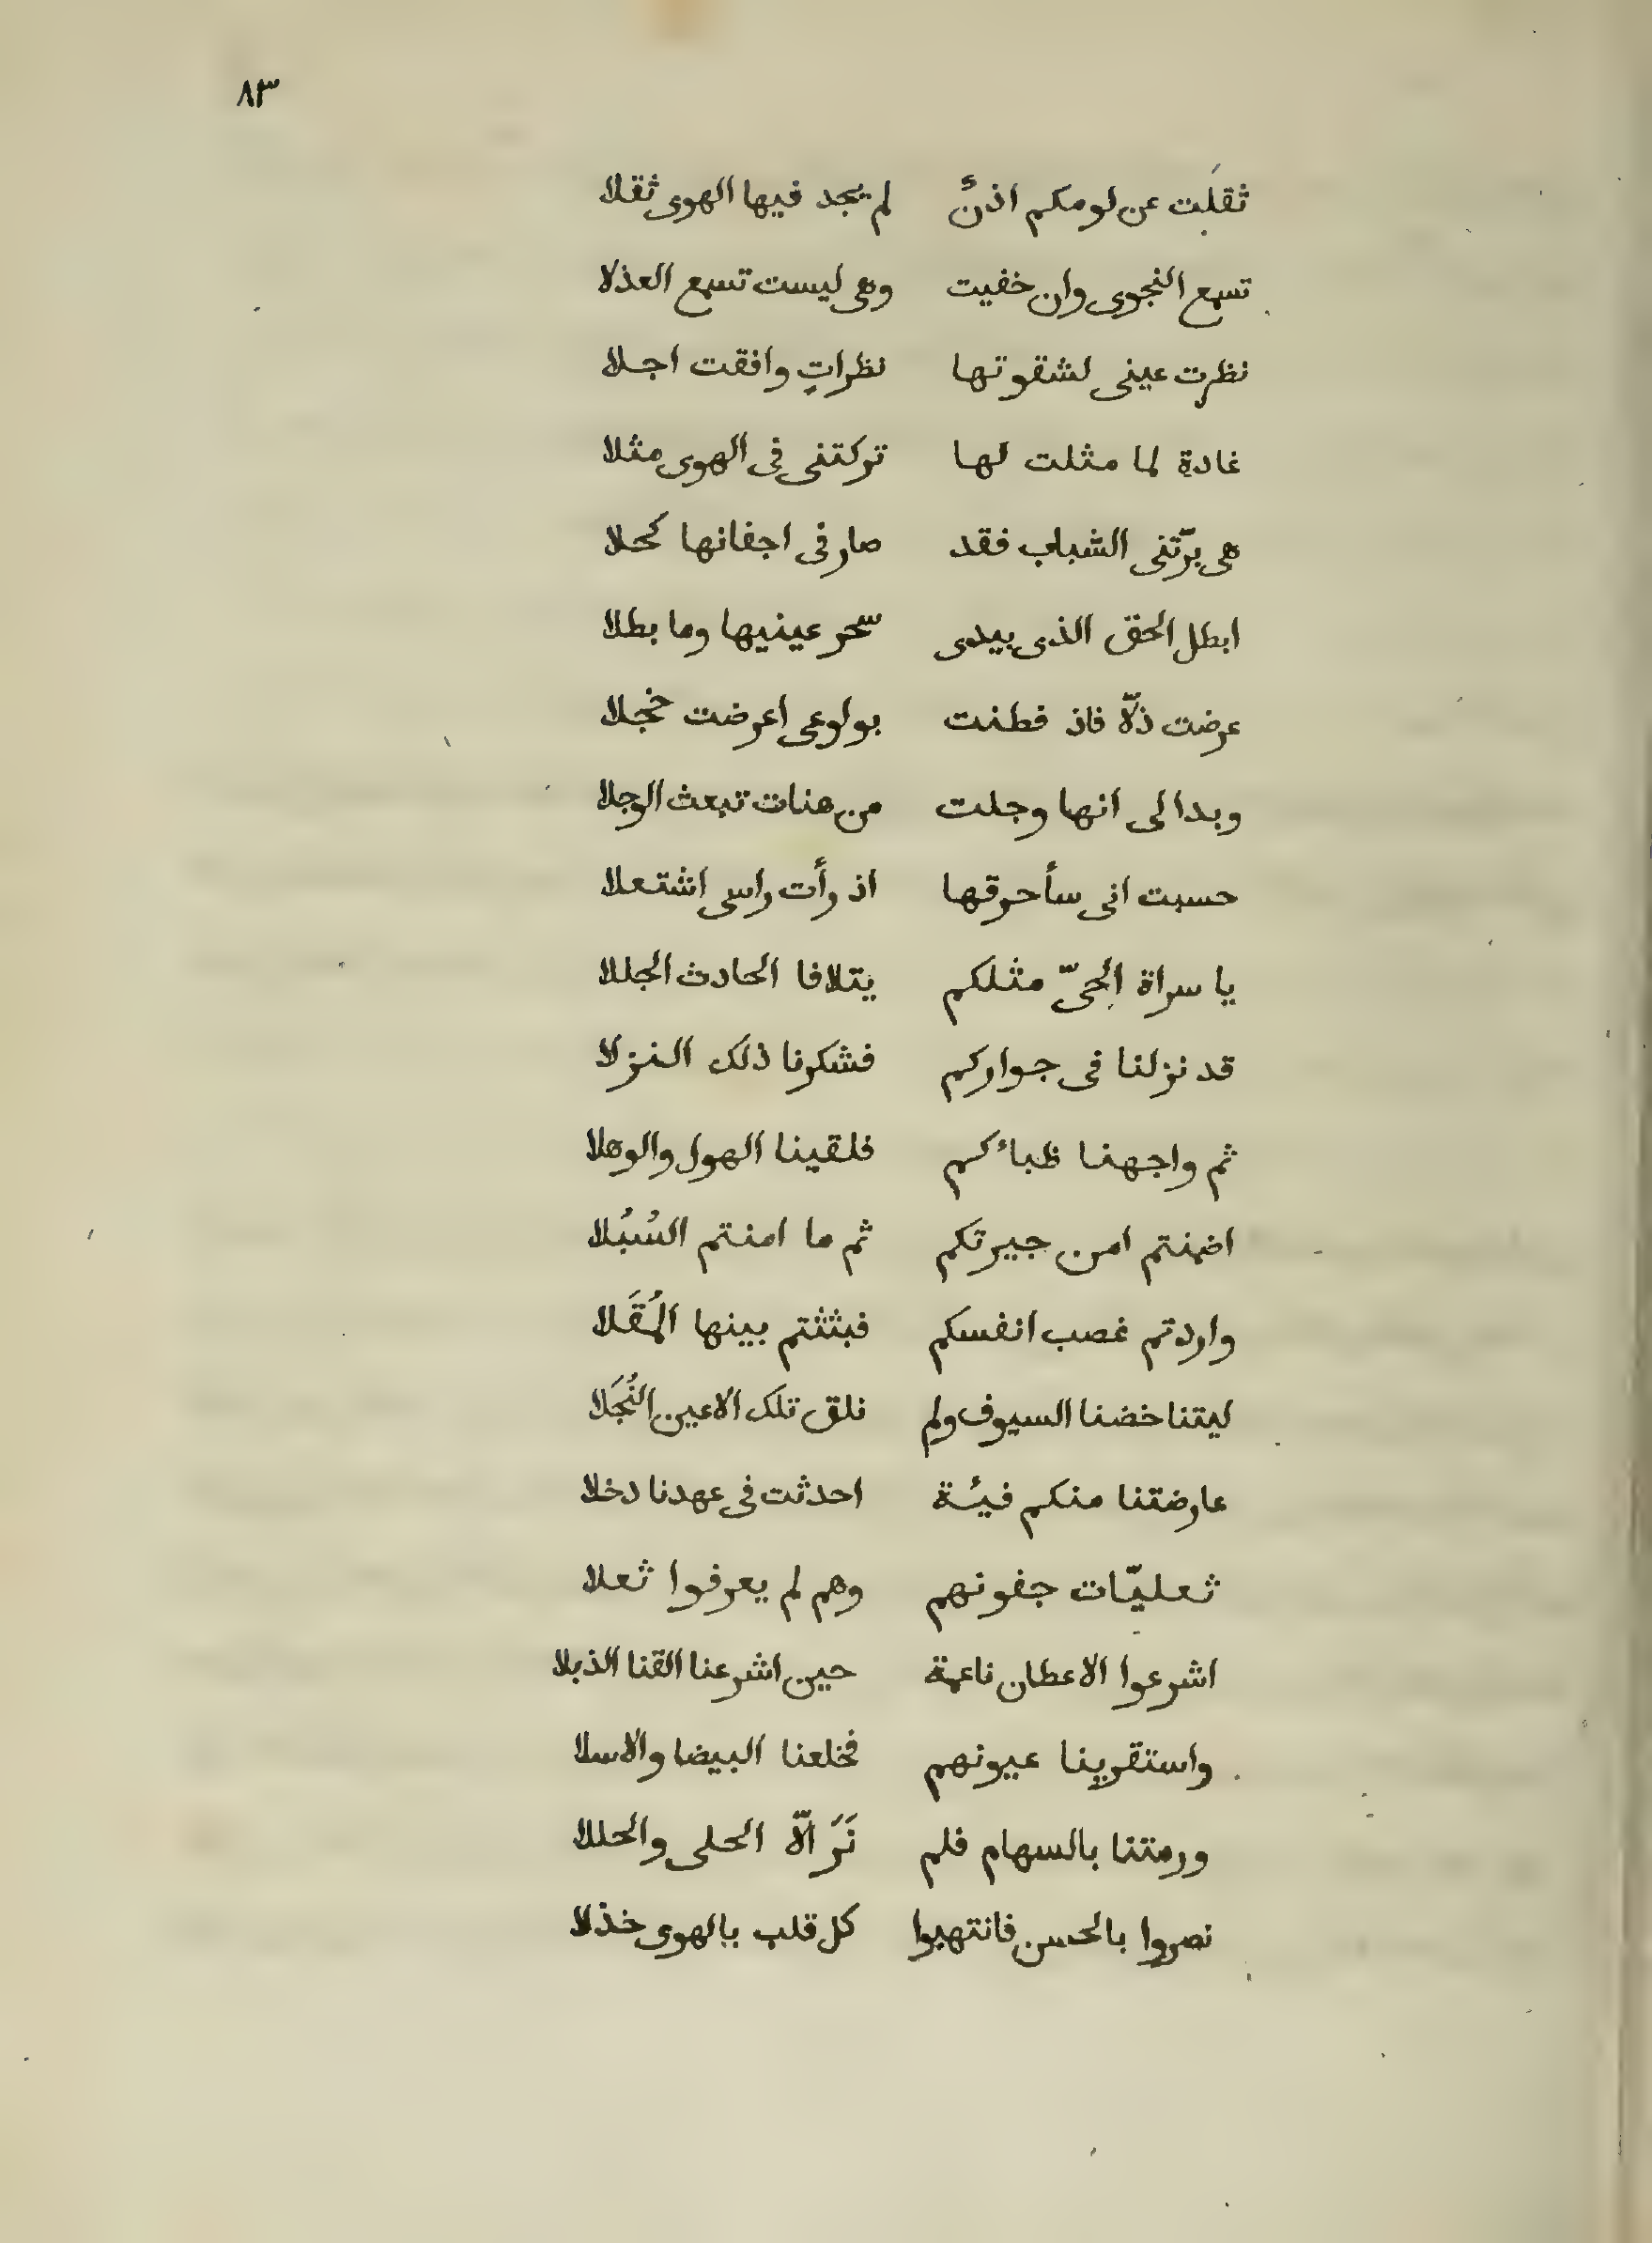 ٨٣
ثقلَت عن لومكم اذنٌ لم يجد فيها الهوى ثقلا
تسمع النجوى وان خفيت وهى ليست تسمع العذلا
نظرت عينى لشقوتها نظراتٍ وافقت اجلا
غادة لما مثلت لها تركتنى فى الهوى مثلا
هى بزّتنى الشباب فقد صار فى اجفانها كحلا
ابطل الحق الذى بيدى سحر عينيها وما بطلا
عرضت ذلّا فاذ فطنت بولوعى اعرضت خجلا
وبدا لى انها وجلت من هنات تبعث الوجلا
حسبت انى سأحرقها اذ رأت راسى اشتعلا
يا سراة الحىّ مثلكم يتلافا الحادث الجللا
قد نزلنا فى جواركم فشكرنا ذلك النزلا
ثم واجهنا ظباءكم فلقينا الهول والوهلا
اضمنتم امن جيرتكم ثم ما امنتم السُبُلا
واردتم غصب انفسكم فبثثتم بينها المُقَلا
ليتنا خضنا السيوف ولم نلق تلك الاعين النُجَلا
عارضتنا منكم فيئة احدثت فى عهدنا دخلا
ثعليّات جفونهم وهم لم يعرفوا ثعلا
اشرعوا الاعطان ناعمة حين اشرعنا القنا الذبلا
واستقرينا عيونهم فخلعنا البيضا والاسلا
ورمتنا بالسهام فلم نَرَ الّا الحلى والحللا
نصروا بالحسن فانتهبوا كل قلب بالهوى خذلا